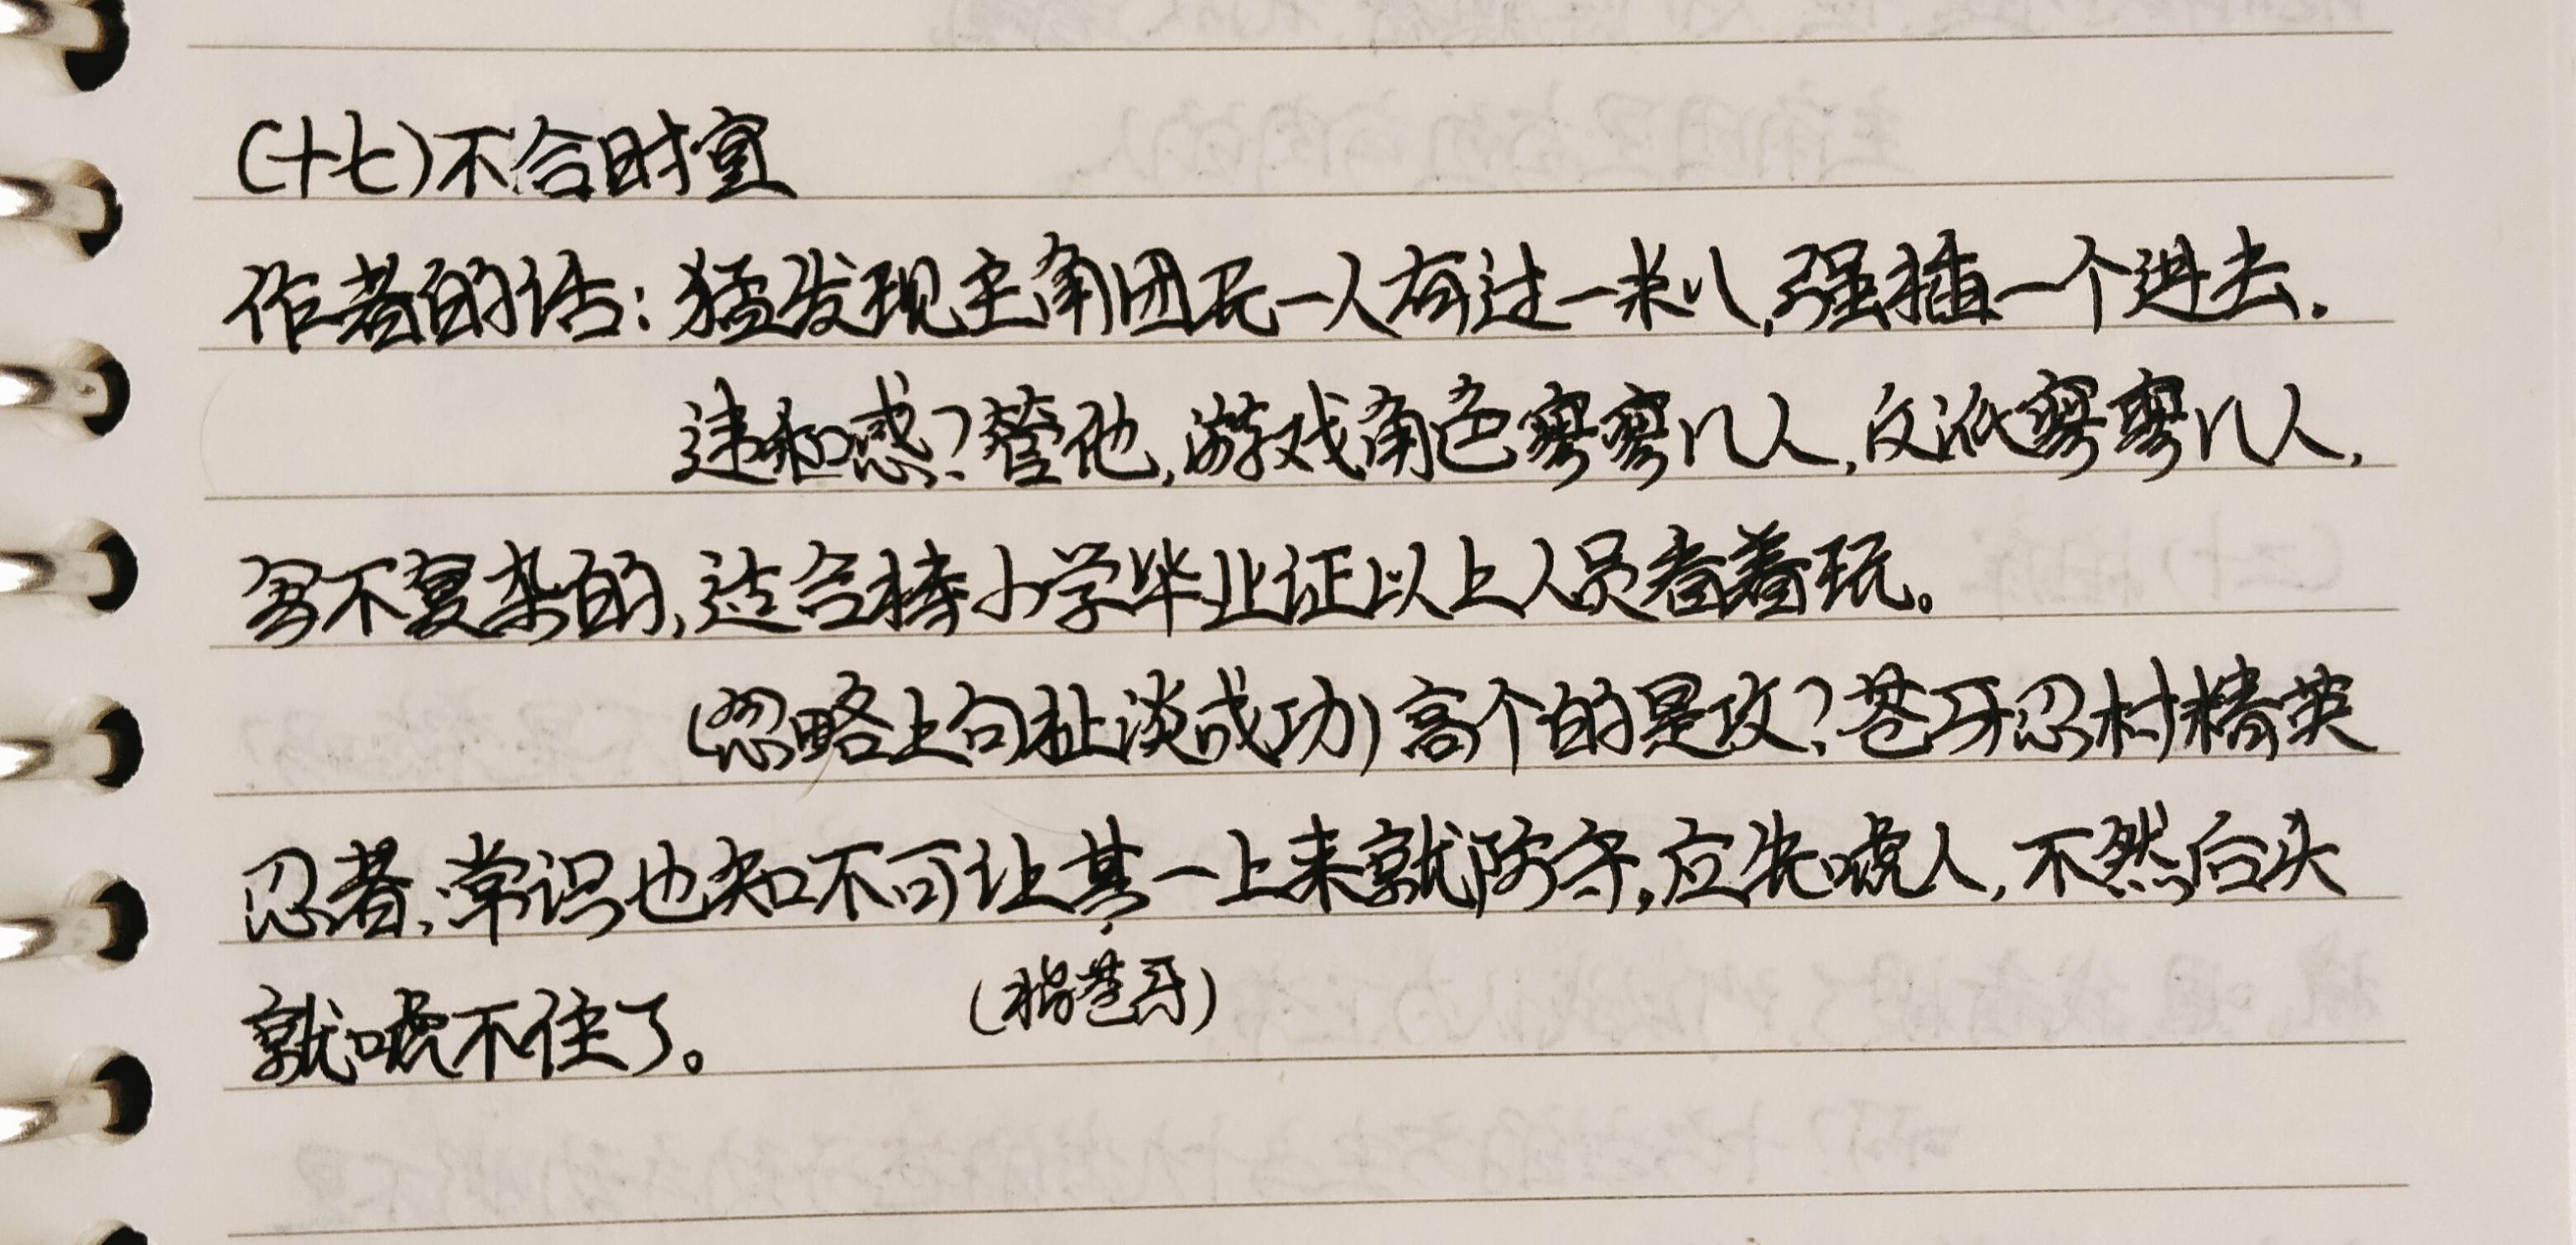 (十七)不合时宜
作者的话：猛发现主角团无一人有过一米八,强插一个进去.
违和感？管他,游戏角色寥寥几人,反派寥寥几人,
写不复杂的,适合持小学毕业证以上人员看着玩。
(忽略上句扯淡成功)高个的是攻？苍牙忍村精英
忍者,常识也知不可让其一上来就防守,应先唬人,不然后头
(指苍牙)
就唬不住了。